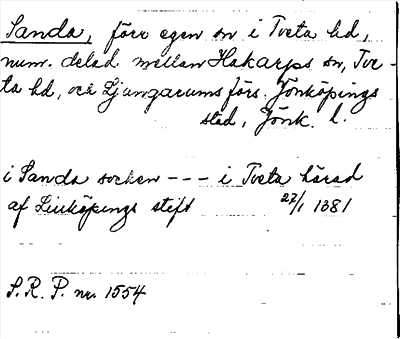 Sanda, förr egen sn i Tveta hd,
num. delad mellan Hakarps sn, Tve-
ta hd, och Ljungarums förs. Jönköpings
stad, Jönk. l.
i Sanda socken --- i Tveta härad
af Linköpings stift 27/1 1381
S.R.P. nr. 1554